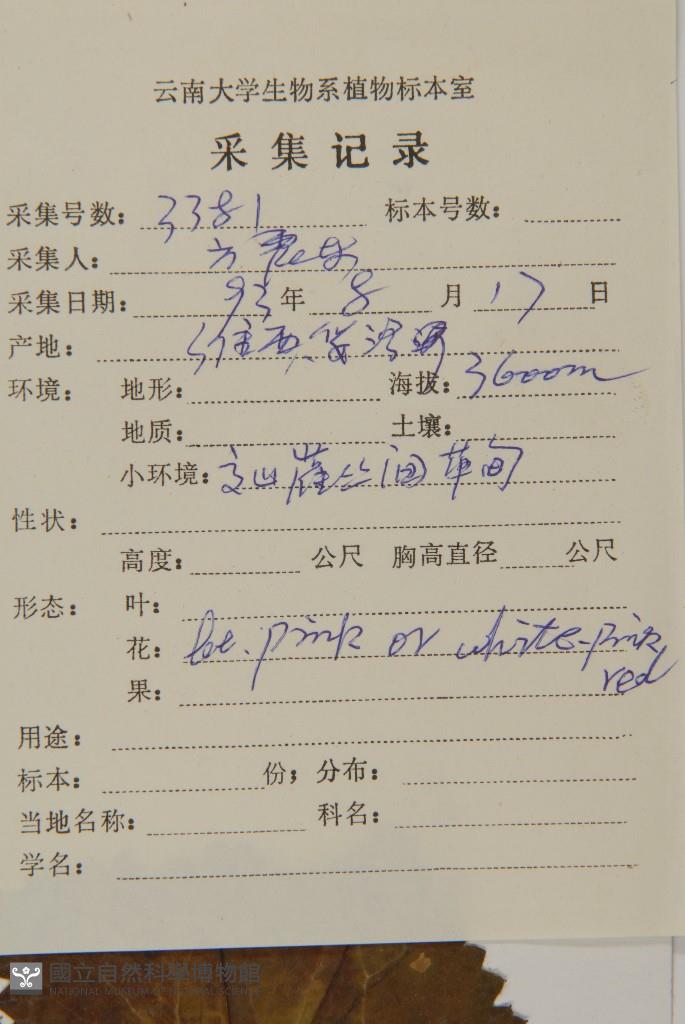 云南大学生物系植物标本室
采集记录
采集号数：3381 标本号数：
采集人：方震东
采集日期：93年8月17日
产地：维西
环境： 地形： 海拔：3600m
地质： 土壤：
小环境：高山灌丛间草甸
性状：
高度： 公尺 胸高直径 公尺
形态： 叶：
花： pink or white-pink
red
果：
用途：
标本： 份；分布：
当地名称： 科名：
学名：
國立自然科學博物館
NATIONAL MUSEUM OF NATURAL SCIENCE